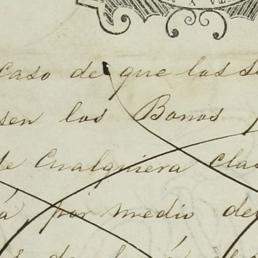 caso de que los s
sen los Bonos
de cualquiera clas
á, por medio de